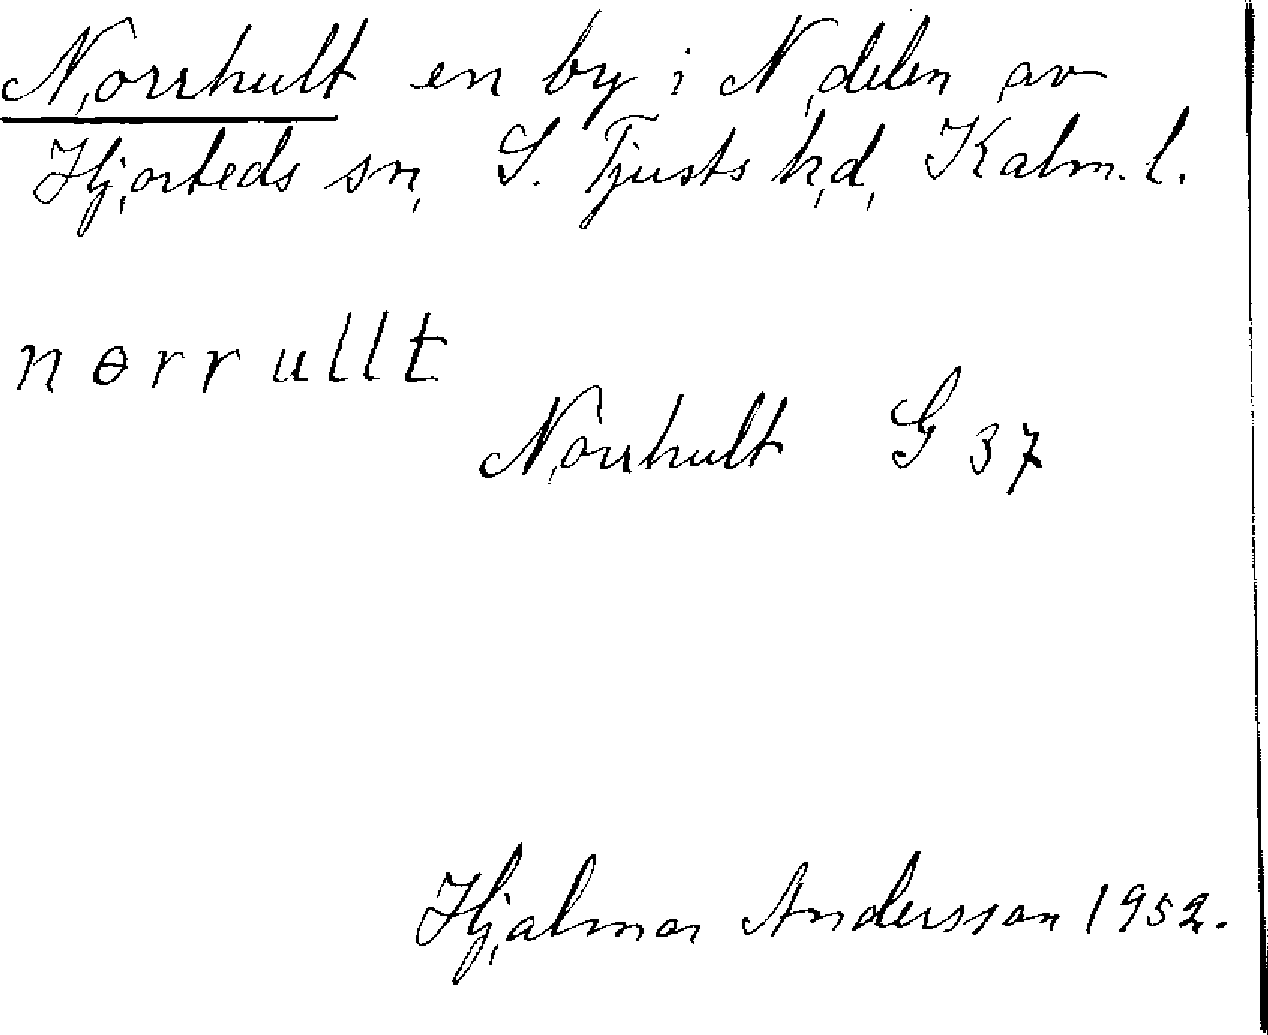 Norrhult en by i N delen av
Hjorteds sn, S. Tjusts hd, Kalm. l.
nɵrrullt
Norrhult G 37
Hjalmar Andersson 1952.